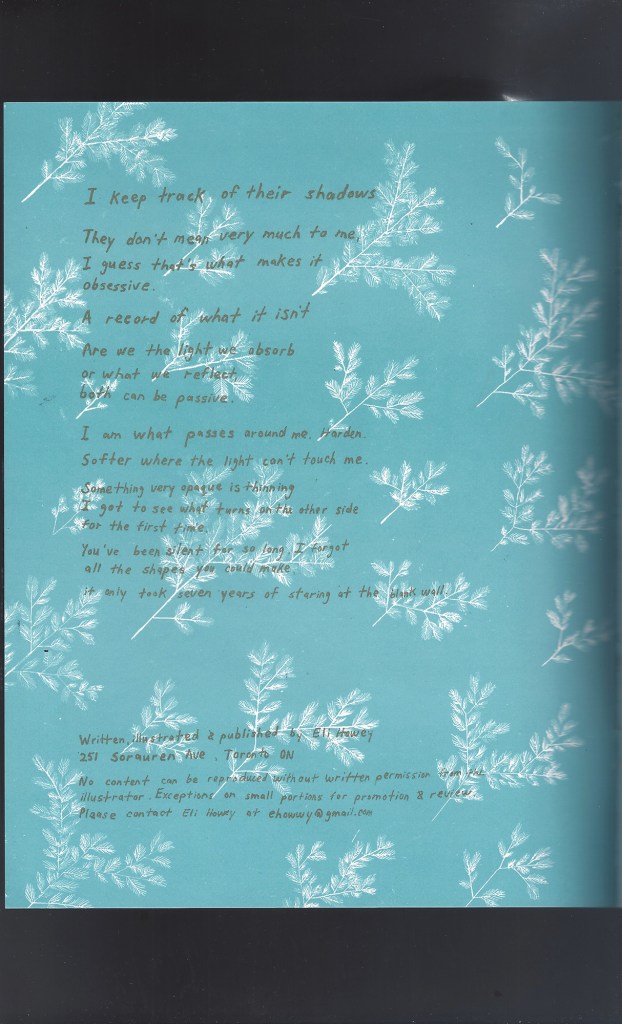 I keep track of their shadows
They don't mean very much to me,
I guess that's what makes it
obsessive.
A record of what it isn't
Are we the light we absorb
or what we reflect,
both can be passive.
I am what passes around me. Harden.
Softer where the light can't touch me.
Something very opaque is thinning
I got to see what turns on the other side
for the first time.
You've been silent for so long, I forgot
all the shapes you could make
it only took seven years of staring at the blank wall.
Written, illustrated & published by Eli Howey
251 Sorauren Ave, Toronto ON
No content can be reproduced without written permission from
illustrator. Exceptions on small portions for promotion & review.
Please contact Eli Howey at ehowwy@gmail.com